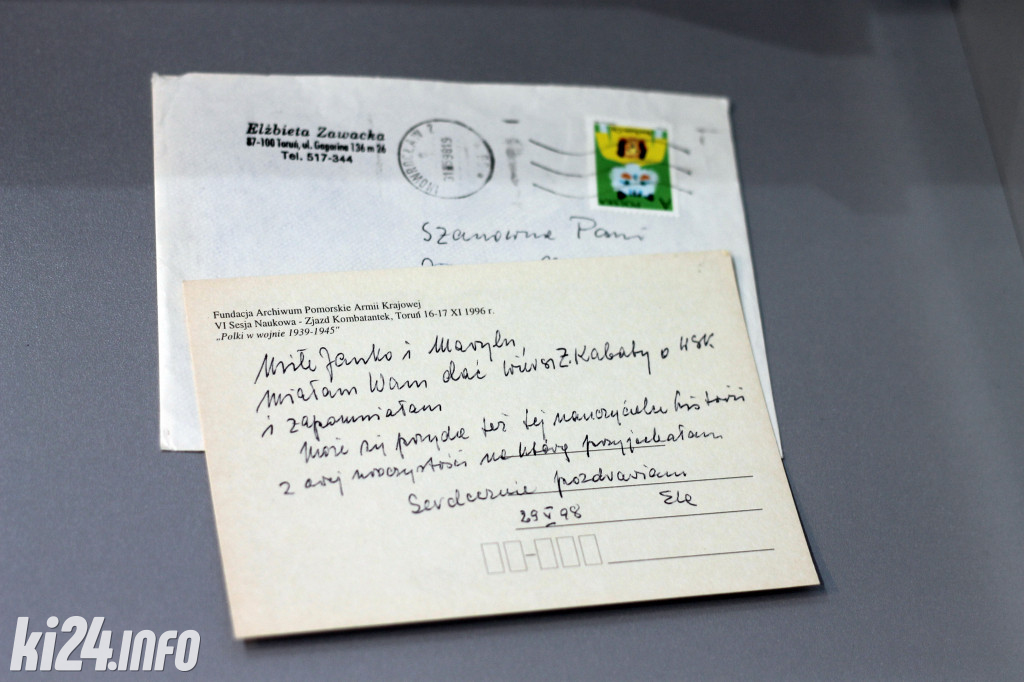 Elżbieta Zawacka
87-100 Toruń, ul. Gagarina 136 m 26
Tel. 517-344
INOWROCŁAW 2
Szanowna Pani
Fundacja Archiwum Pomorskie Armii Krajowej
VI Sesja Naukowa - Zjazd Kombatantek, Toruń 16-17 XI 1996 r.
„Polki w wojnie 1939-1945”
Miłe Janko i Marylu
miałam Wam dać wiersz Z. Kabaty o WSK
i zapomniałam
Może się przyda też tej nauczycielce historii
z owej uroczystości na którą przyjechałam
Serdecznie pozdrawiam
29 V 98 Ela
ki24.info